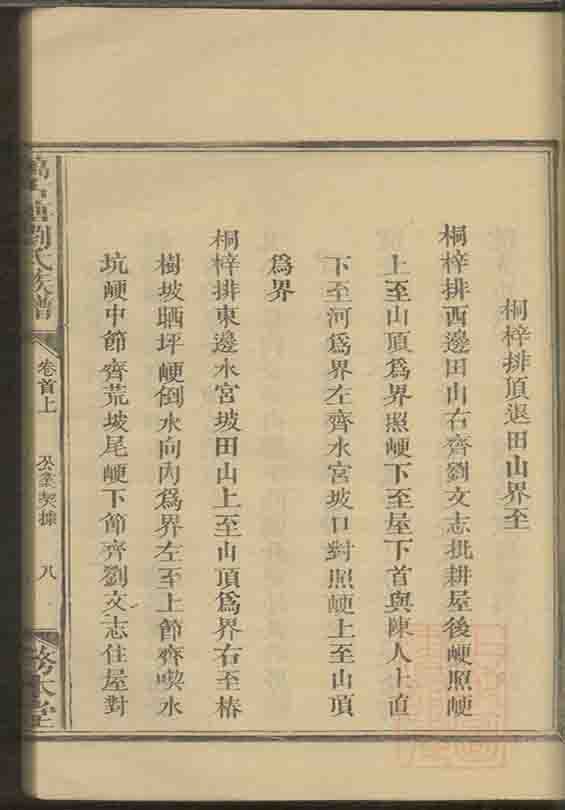 桐梓排頂退田山界至
桐梓排西邊田山右齊劉文志批耕屋後㟁照㟁
上至山頂爲界照㟁下至屋下首與陳人上直
下至河爲界左齊水宮坡口對照㟁上至山頂
爲界
桐梓排東邊水宮坡田山上至山頂爲界右至椿
樹坡晒坪㟁倒水向內爲界左至上節齊喫水
坑㟁中節齊荒坡尾㟁下節齊劉文志住屋對
劉氏族譜
卷首上
公業契據
八
務本堂